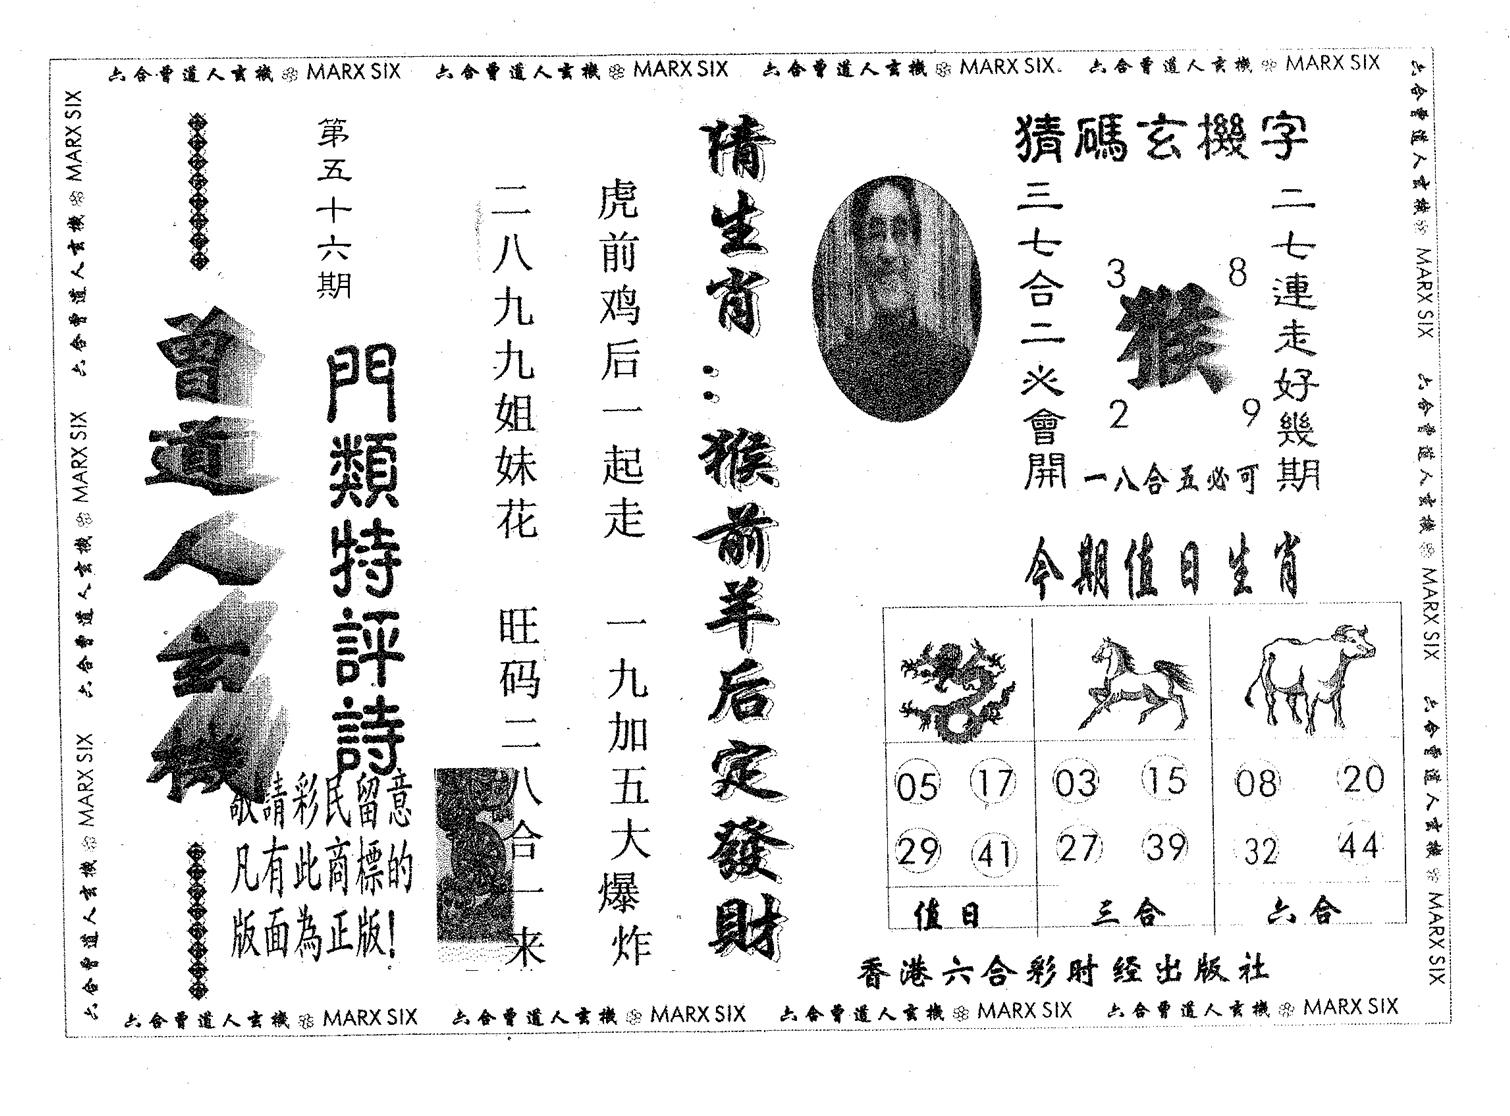 六合曾道人玄機 MARX SIX 六合曾道人玄機 MARX SIX 六合曾道人玄機 MARX SIX 六合曾道人玄機 MARX SIX
猜碼玄機字
二七連走好幾期
3 8
猴
2 9
三七合二必會開
一八合五必可
今期值日生肖
05 17 03 15 08 20
29 41 27 39 32 44
值日 三合 六合
香港六合彩时经出版社
猜生肖：猴前羊后定發財
虎前鸡后一起走 一九加五大爆炸
二八九九姐妹花 旺码二八合一来
第五十六期
門類特評詩
曾道人玄機
敬請彩民留意
凡有此商標的
版面為正版!
六合曾道人玄機 MARX SIX 六合曾道人玄機 MARX SIX 六合曾道人玄機 MARX SIX
六合曾道人玄機 MARX SIX 六合曾道人玄機 MARX SIX 六合曾道人玄機 MARX SIX
六合曾道人玄機 MARX SIX 六合曾道人玄機 MARX SIX 六合曾道人玄機 MARX SIX 六合曾道人玄機 MARX SIX